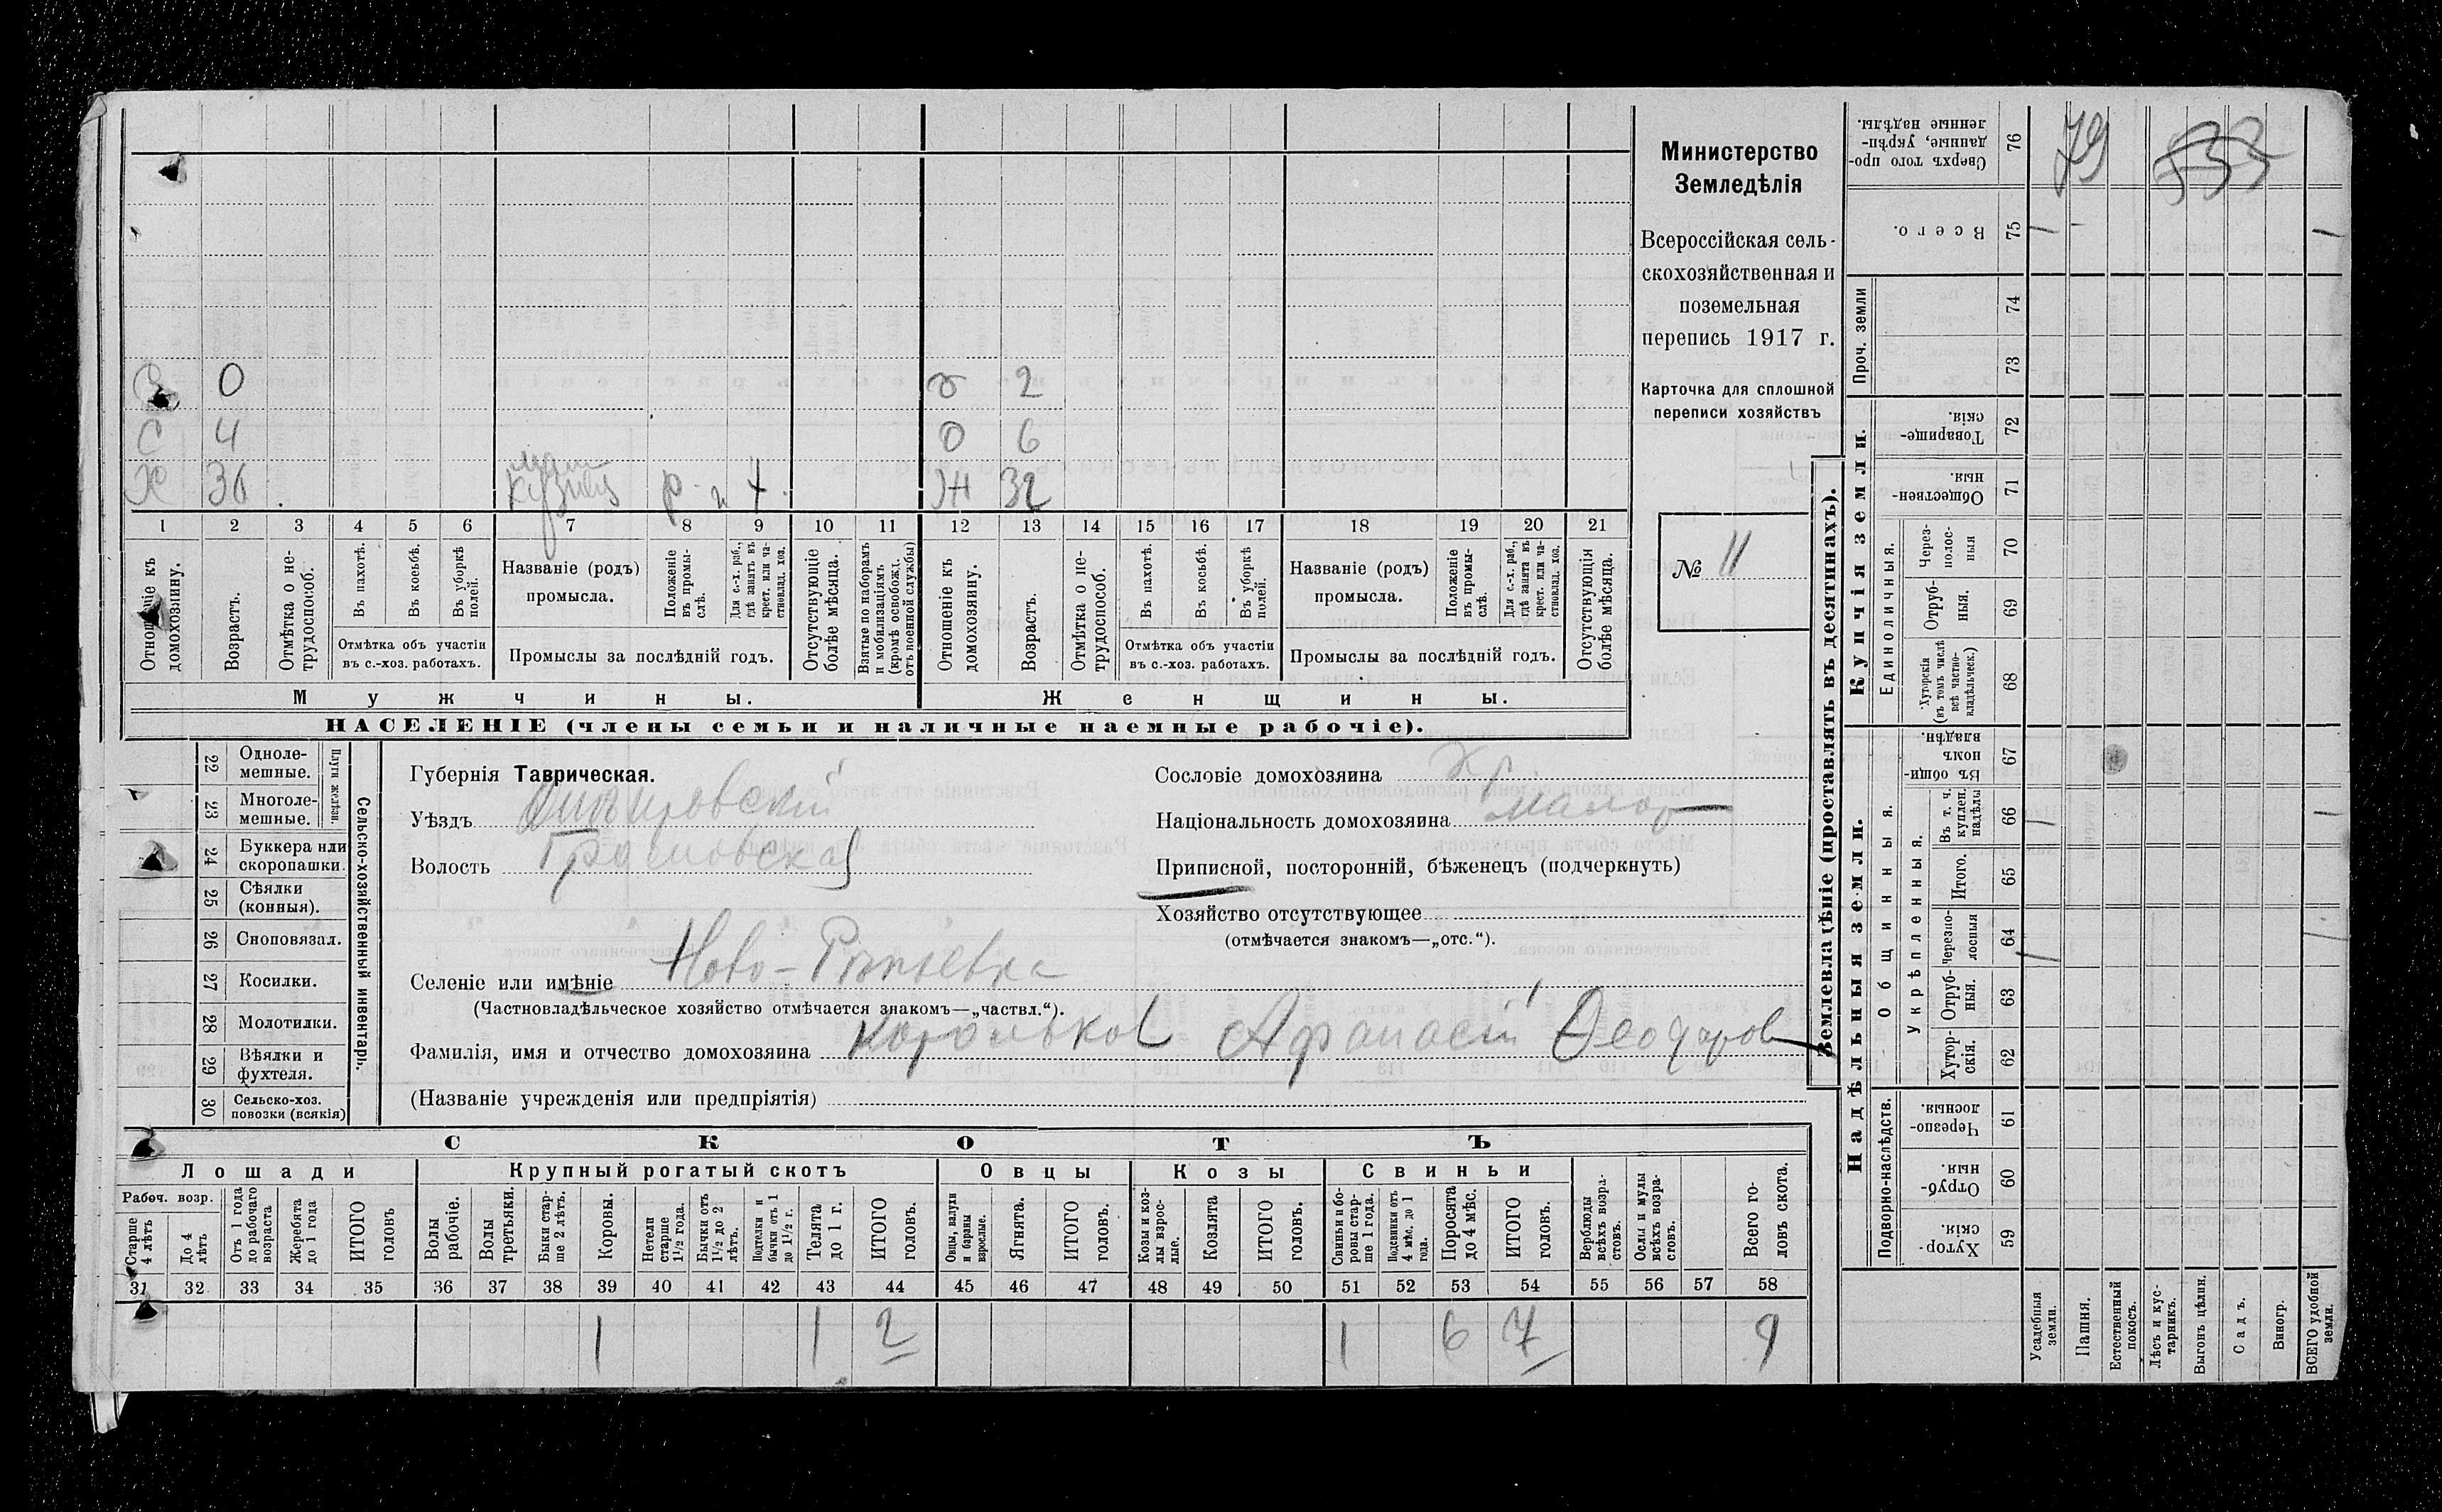 Министерство
Земледѣлія
Всероссійская сель-
скохозяйственная и
поземельная
перепись 1917 г.
Карточка для сплошной
переписи хозяйствъ
№ 11
0 2
С 4 О 6
Х 36 кузнец р Ж 32
1 2 3 4 5 6 7 8 9 10 11 12 13 14 15 16 17 18 19 20 21
Отношеніе къ домохозяину.
Возрастъ.
Отмѣтка о не-
трудоспособ.
Въ пахотѣ.
Въ косьбѣ.
Въ уборкѣ
полей.
Отмѣтка объ участіи
въ с.-хоз. работахъ.
Названіе (родъ)
промысла.
Положеніе
въ промы-
слѣ.
Для с.-х. раб.,
гдѣ занятъ въ
крест. или ча-
стновлад. хоз.
Промыслы за послѣдній годъ.
Отсутствующіе
болѣе мѣсяца.
Взятые по наборамъ
и мобилизаціямъ
(кромѣ освобожд.
отъ военной службы)
Отношеніе къ
домохозяину.
Возрастъ.
Отмѣтка о не-
трудоспособ.
Въ пахотѣ.
Въ косьбѣ.
Въ уборкѣ
полей.
Отмѣтка объ участіи
въ с.-хоз. работахъ.
Названіе (родъ)
промысла.
Положеніе
въ промы-
слѣ.
Для с.-х. раб.,
гдѣ занята въ
крест. или ча-
стновлад. хоз.
Промыслы за послѣдній годъ.
Отсутствующія
болѣе мѣсяца.
Мужчины.
Женщины.
НАСЕЛЕНІЕ (члены семьи и наличные наемные рабочіе).
22 Одноле-
мешные.
23 Многоле-
мешные.
Плуги желѣзн.
24 Буккера или
скоропашки.
25 Сѣялки
(конныя).
26 Сноповязал.
27 Косилки.
28 Молотилки.
29 Вѣялки и
фухтеля.
30 Сельско-хоз.
повозки (всякія)
Сельско-хозяйственный инвентарь.
Губернія Таврическая.
Уѣздъ
Волость
Селеніе или имѣніе
(Частновладѣльческое хозяйство отмѣчается знакомъ—„частвл.“).
Фамилія, имя и отчество домохозяина Корольков Афанасій Ѳеодоров
(Названіе учрежденія или предпріятія)
Сословіе домохозяина кр.
Національность домохозяина малор
Приписной, посторонній, бѣженецъ (подчеркнуть)
Хозяйство отсутствующее
(отмѣчается знакомъ—„отс.“).
СКОТЪ
Лошади
Крупный рогатый скотъ
Овцы
Козы
Свиньи
Рабоч. возр.
Старше
4 лѣтъ
До 4
лѣтъ
Отъ 1 года
до рабочаго
возраста
Жеребята
до 1 года
ИТОГО
головъ
Волы
рабочіе.
Волы
третьяки.
Быки стар-
ше 2 лѣтъ.
Коровы.
Нетели
старше
1½ года.
Бычки отъ
1½ до 2
лѣтъ.
Подтелки и
бычки отъ 1
до 1½ г.
Телята
до 1 г.
ИТОГО
головъ.
Овцы, валухи
и бараны
взрослые.
Ягнята.
ИТОГО
головъ.
Козы и коз-
лы взрос-
лые.
Козлята
ИТОГО
головъ.
Свиньи и бо-
ровы стар-
ше 1 года.
Подсвинки отъ
4 мѣс. до 1
года.
Поросята
до 4 мѣс.
ИТОГО
головъ.
Верблюды
всѣхъ возра-
стовъ.
Ослы и мулы
всѣхъ возра-
стовъ.
Всего го-
ловъ скота.
31 32 33 34 35 36 37 38 39 40 41 42 43 44 45 46 47 48 49 50 51 52 53 54 55 56 57 58
1 1 2 1 6 7 9
Землевладѣніе (проставлять въ десятинахъ).
Надѣльныя земли.
Купчія земли.
Проч. земли
Подворно-наслѣдств.
Общинныя.
Укрѣпленныя.
Единоличныя.
Сверхъ того про-
данные, укрѣп-
ленные надѣлы.
76
Всего.
75
74
73
Товарище-
скія.
72
Обществен-
ныя.
71
Через-
полос-
ныя
70
Отруб-
ныя.
69
Хуторскія
(въ томъ числѣ
всѣ частно-
владѣльческ.)
68
Въ общин-
номъ
владѣн.
67
Въ т. ч.
куплен.
надѣлы
66
Итого.
65
Черезпо-
лосныя
64
Отруб-
ныя.
63
Хутор-
скія.
62
Черезпо-
лосныя.
61
Отруб-
ныя.
60
Хутор-
скія.
59
Усадебныя
земли.
Пашня.
Естественный
покосъ.
Лѣсъ и кус-
тарникъ.
Выгонъ цѣлин.
Садъ.
Виногр.
ВСЕГО удобной
земли.
79